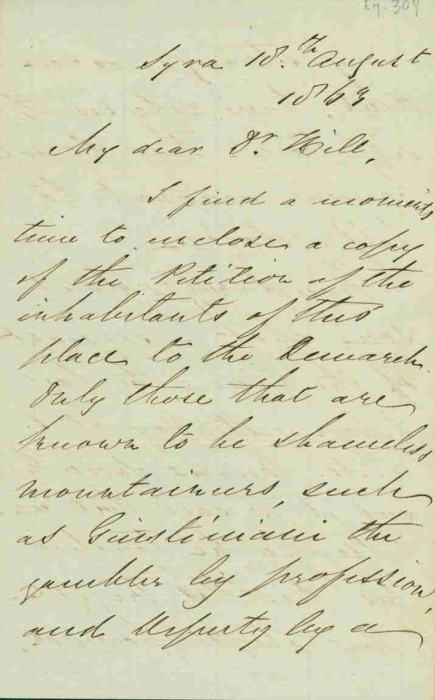 Syra 18.th August
1863
My dear Dr. Hill,
I find a moments
time to enclose a copy
of the Petition of the
inhabitants of this
place to the Demarch.
Only those that are
known to be shameless
mountaineers, such
as Giustiniani the
gambler by profession,
and Deputy by a